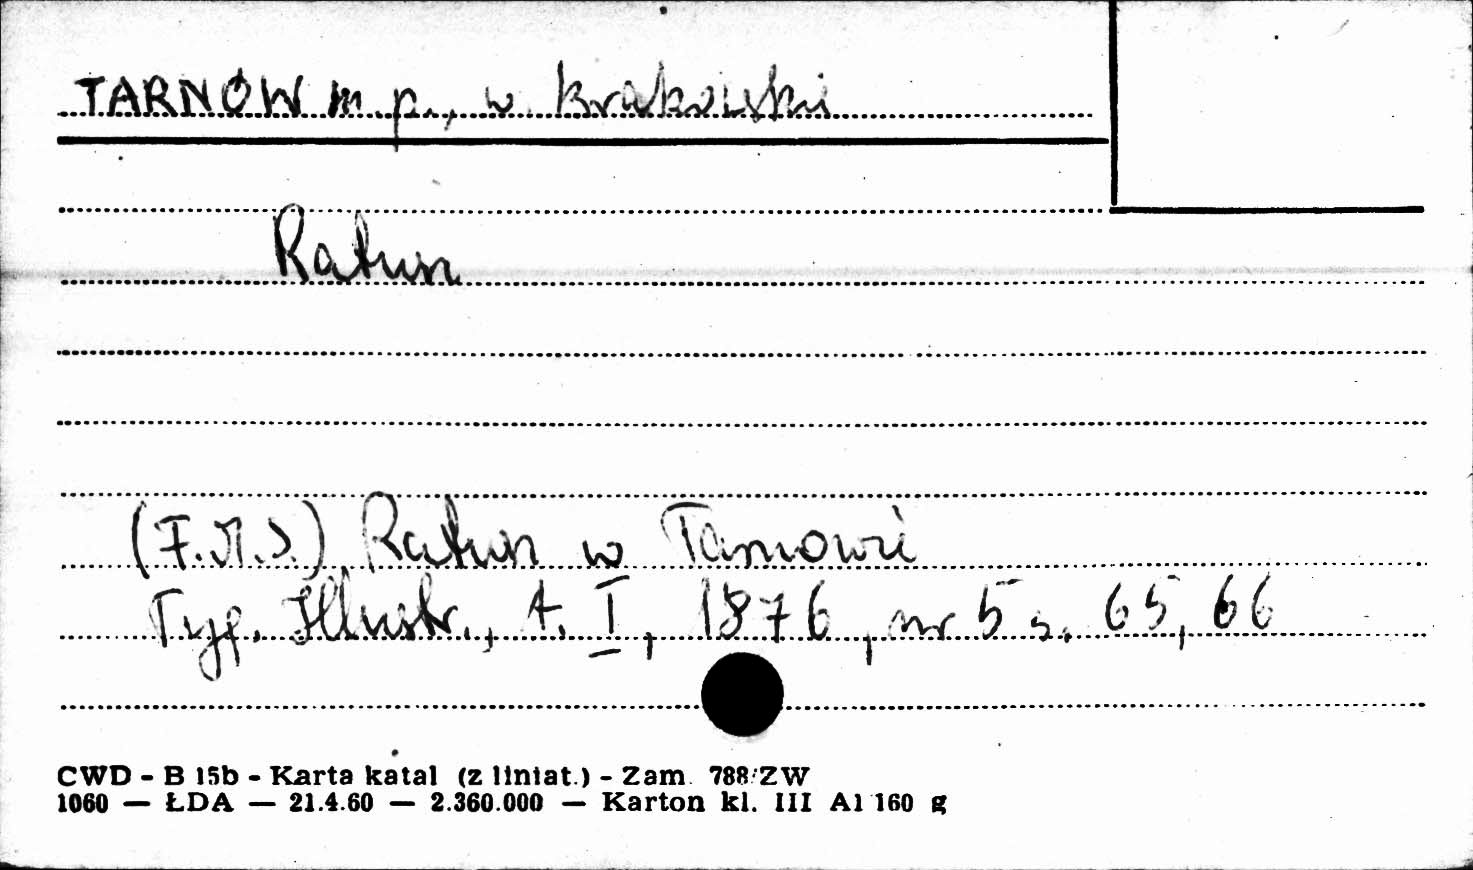 TARNÓW m. p., w. krakowskie
Ratusz
(F.M.S.) Ratusz w Tarnowie
Tyg. Illustr., t. I, 1876, nr 5 s. 65, 66
CWD - B 15b - Karta katal (z liniat.) - Zam. 788/ZW
1060 — ŁDA — 21.4.60 — 2.360.000 — Karton kl. III A1 160 g